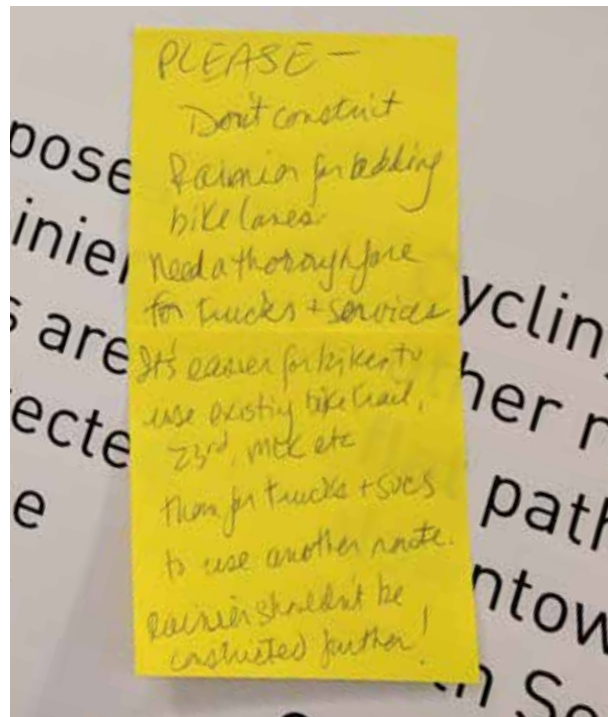 PLEASE —
Don't constrict
Rainier for adding
bike lanes.
Need a thoroughfare
for trucks + services
It's easier for bikes to
use existing bike trail,
23rd, MLK etc
than for trucks + svcs
to use another route.
Rainier shouldn't be
constricted further!
pose
inier
s are
ecte
e
yclin
her r
path
ntow
n So